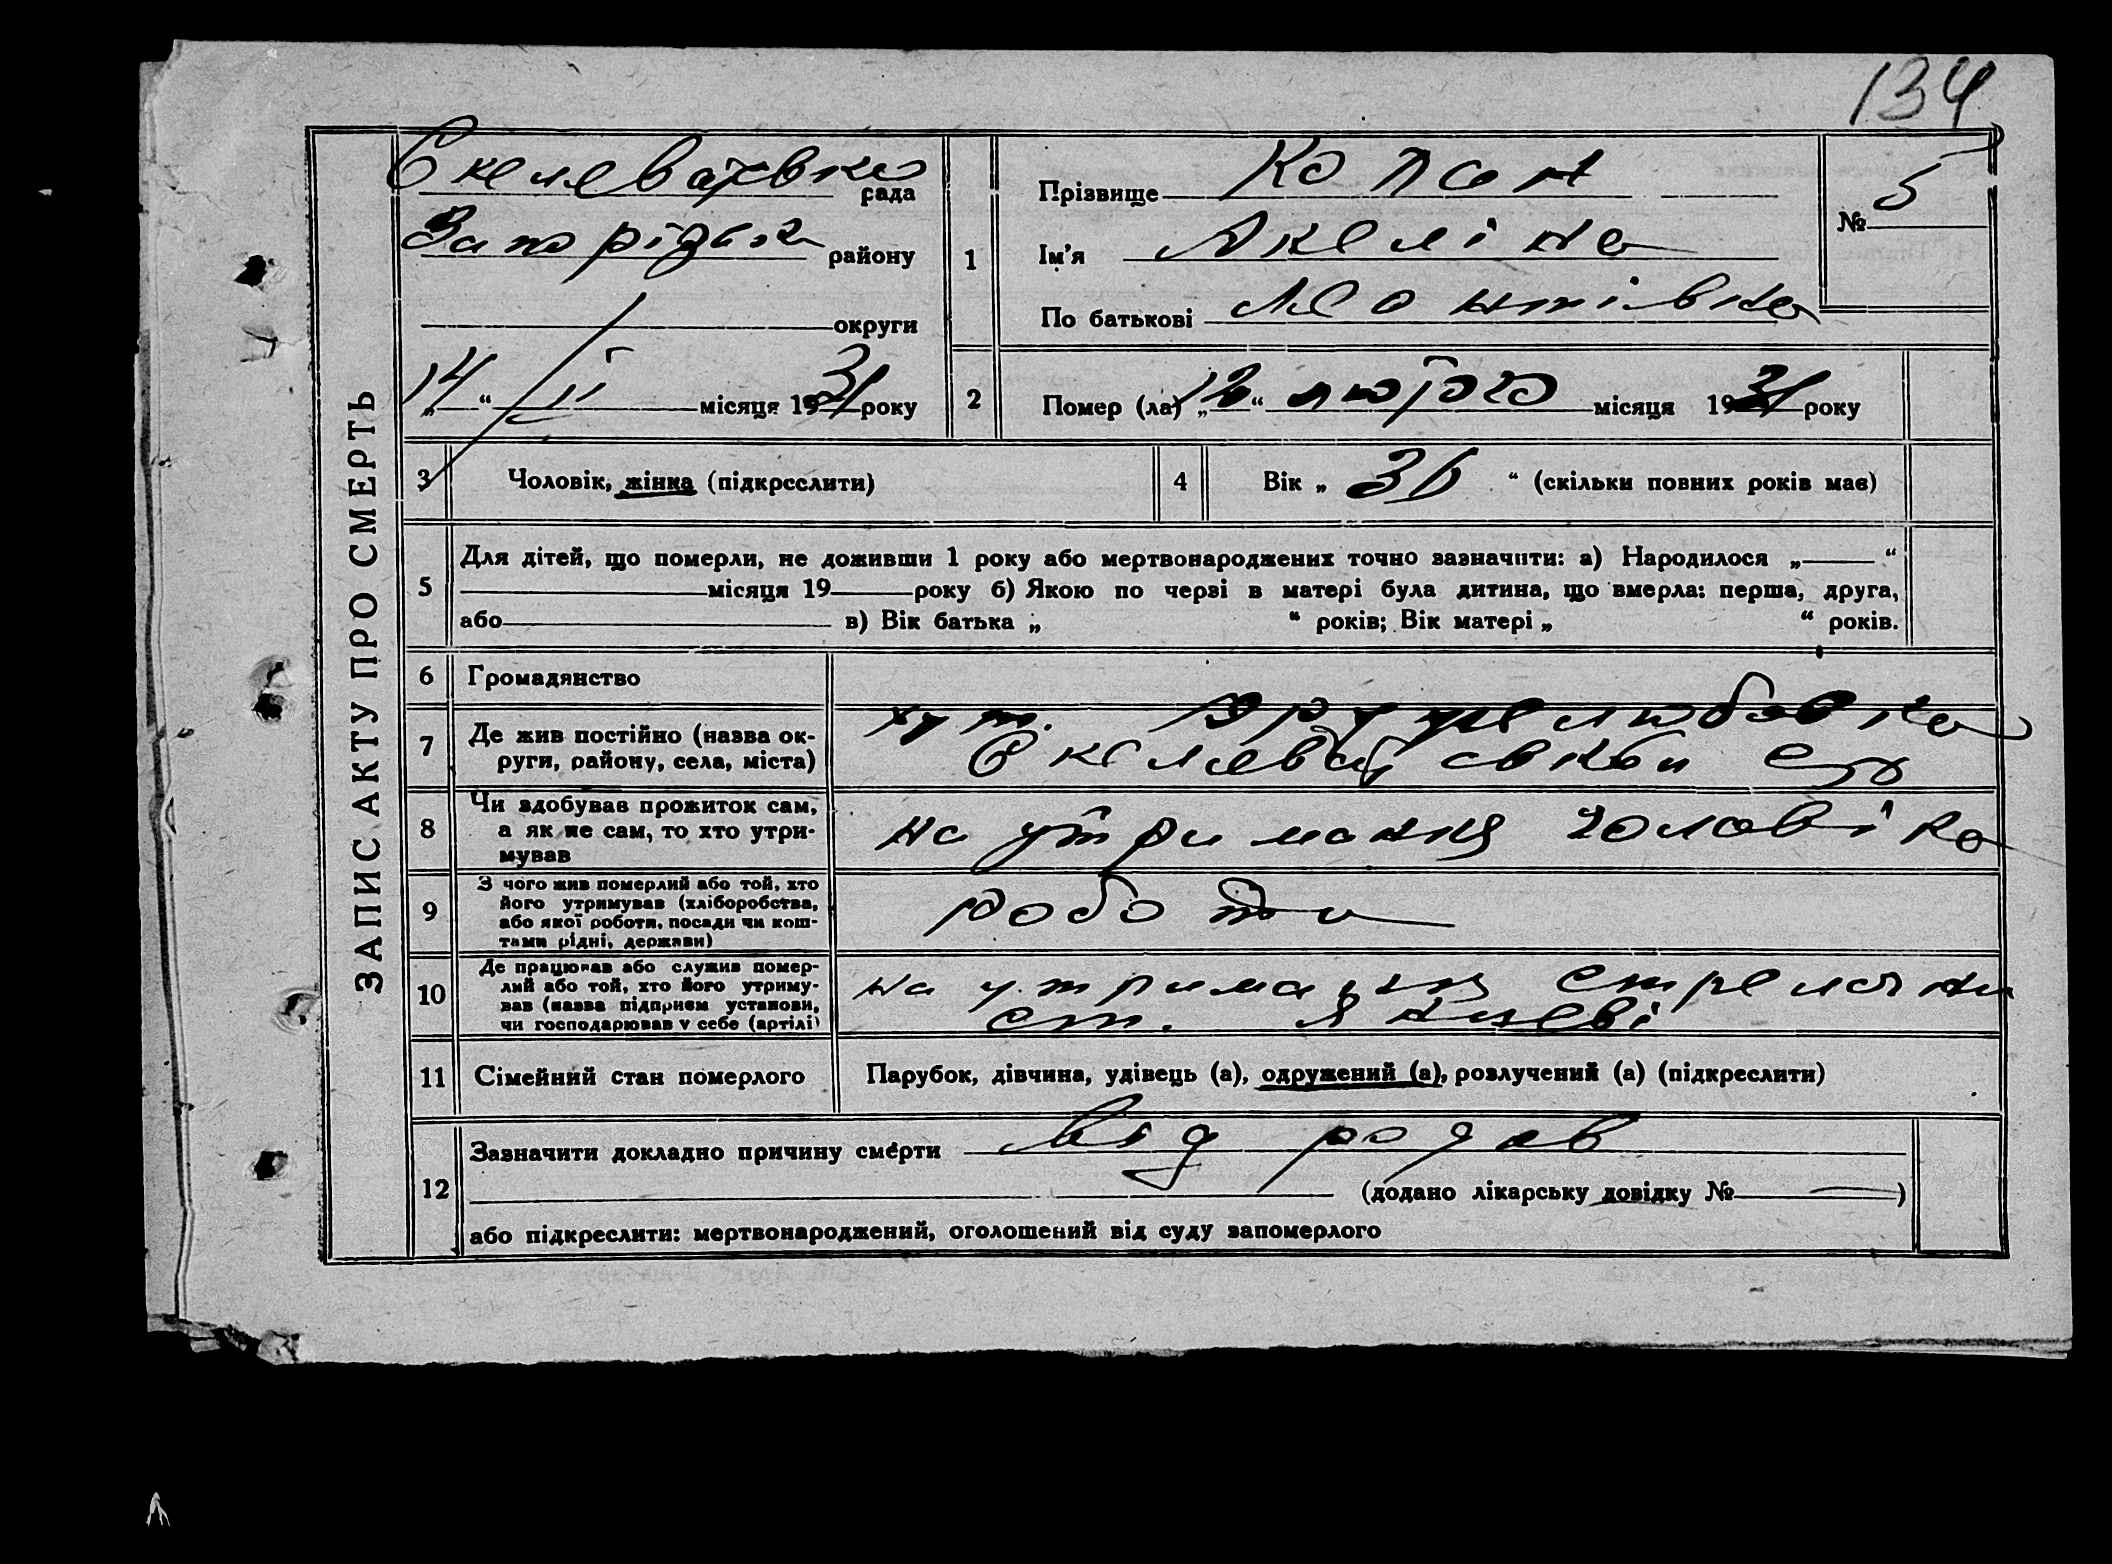 134
ЗАПИС АКТУ ПРО СМЕРТЬ
рада
району
округи
14 II місяця 1931 року
1
Прізвище Копсан
Ім'я Акеліна
По батькові Леонтівна
№ 5
2
Помер (ла) „12“ лютого місяця 1931 року
3
Чоловік, жінка (підкреслити)
4
Вік „36“ (скільки повних років має)
5
Для дітей, що померли, не доживши 1 року або мертвонароджених точно зазначити: а) Народилося „ “
місяця 19 року б) Якою по черзі в матері була дитина, що вмерла: перша, друга,
або в) Вік батька „ “ років; Вік матері „ “ років.
6
Громадянство
7
Де жив постійно (назва ок-
руги, району, села, міста)
хут.
8
Чи здобував прожиток сам,
а як не сам, то хто утри-
мував
на утримання чоловіка
9
З чого жив померлий або той, хто
його утримував (хліборобства,
або якої роботи, посади чи кош-
тами рідні, держави)
роботи
10
Де працював або служив помер-
лий або той, хто його утриму-
вав (назва підприєм установи,
чи господарював у себе (артілі)
на утриманя
ст.
11
Сімейний стан померлого
Парубок, дівчина, удівець (а), одружений (а), розлучений (а) (підкреслити)
12
Зазначити докладно причину смерти Від родів
(додано лікарську довідку № — )
або підкреслити: мертвонароджений, оголошений від суду запомерлого